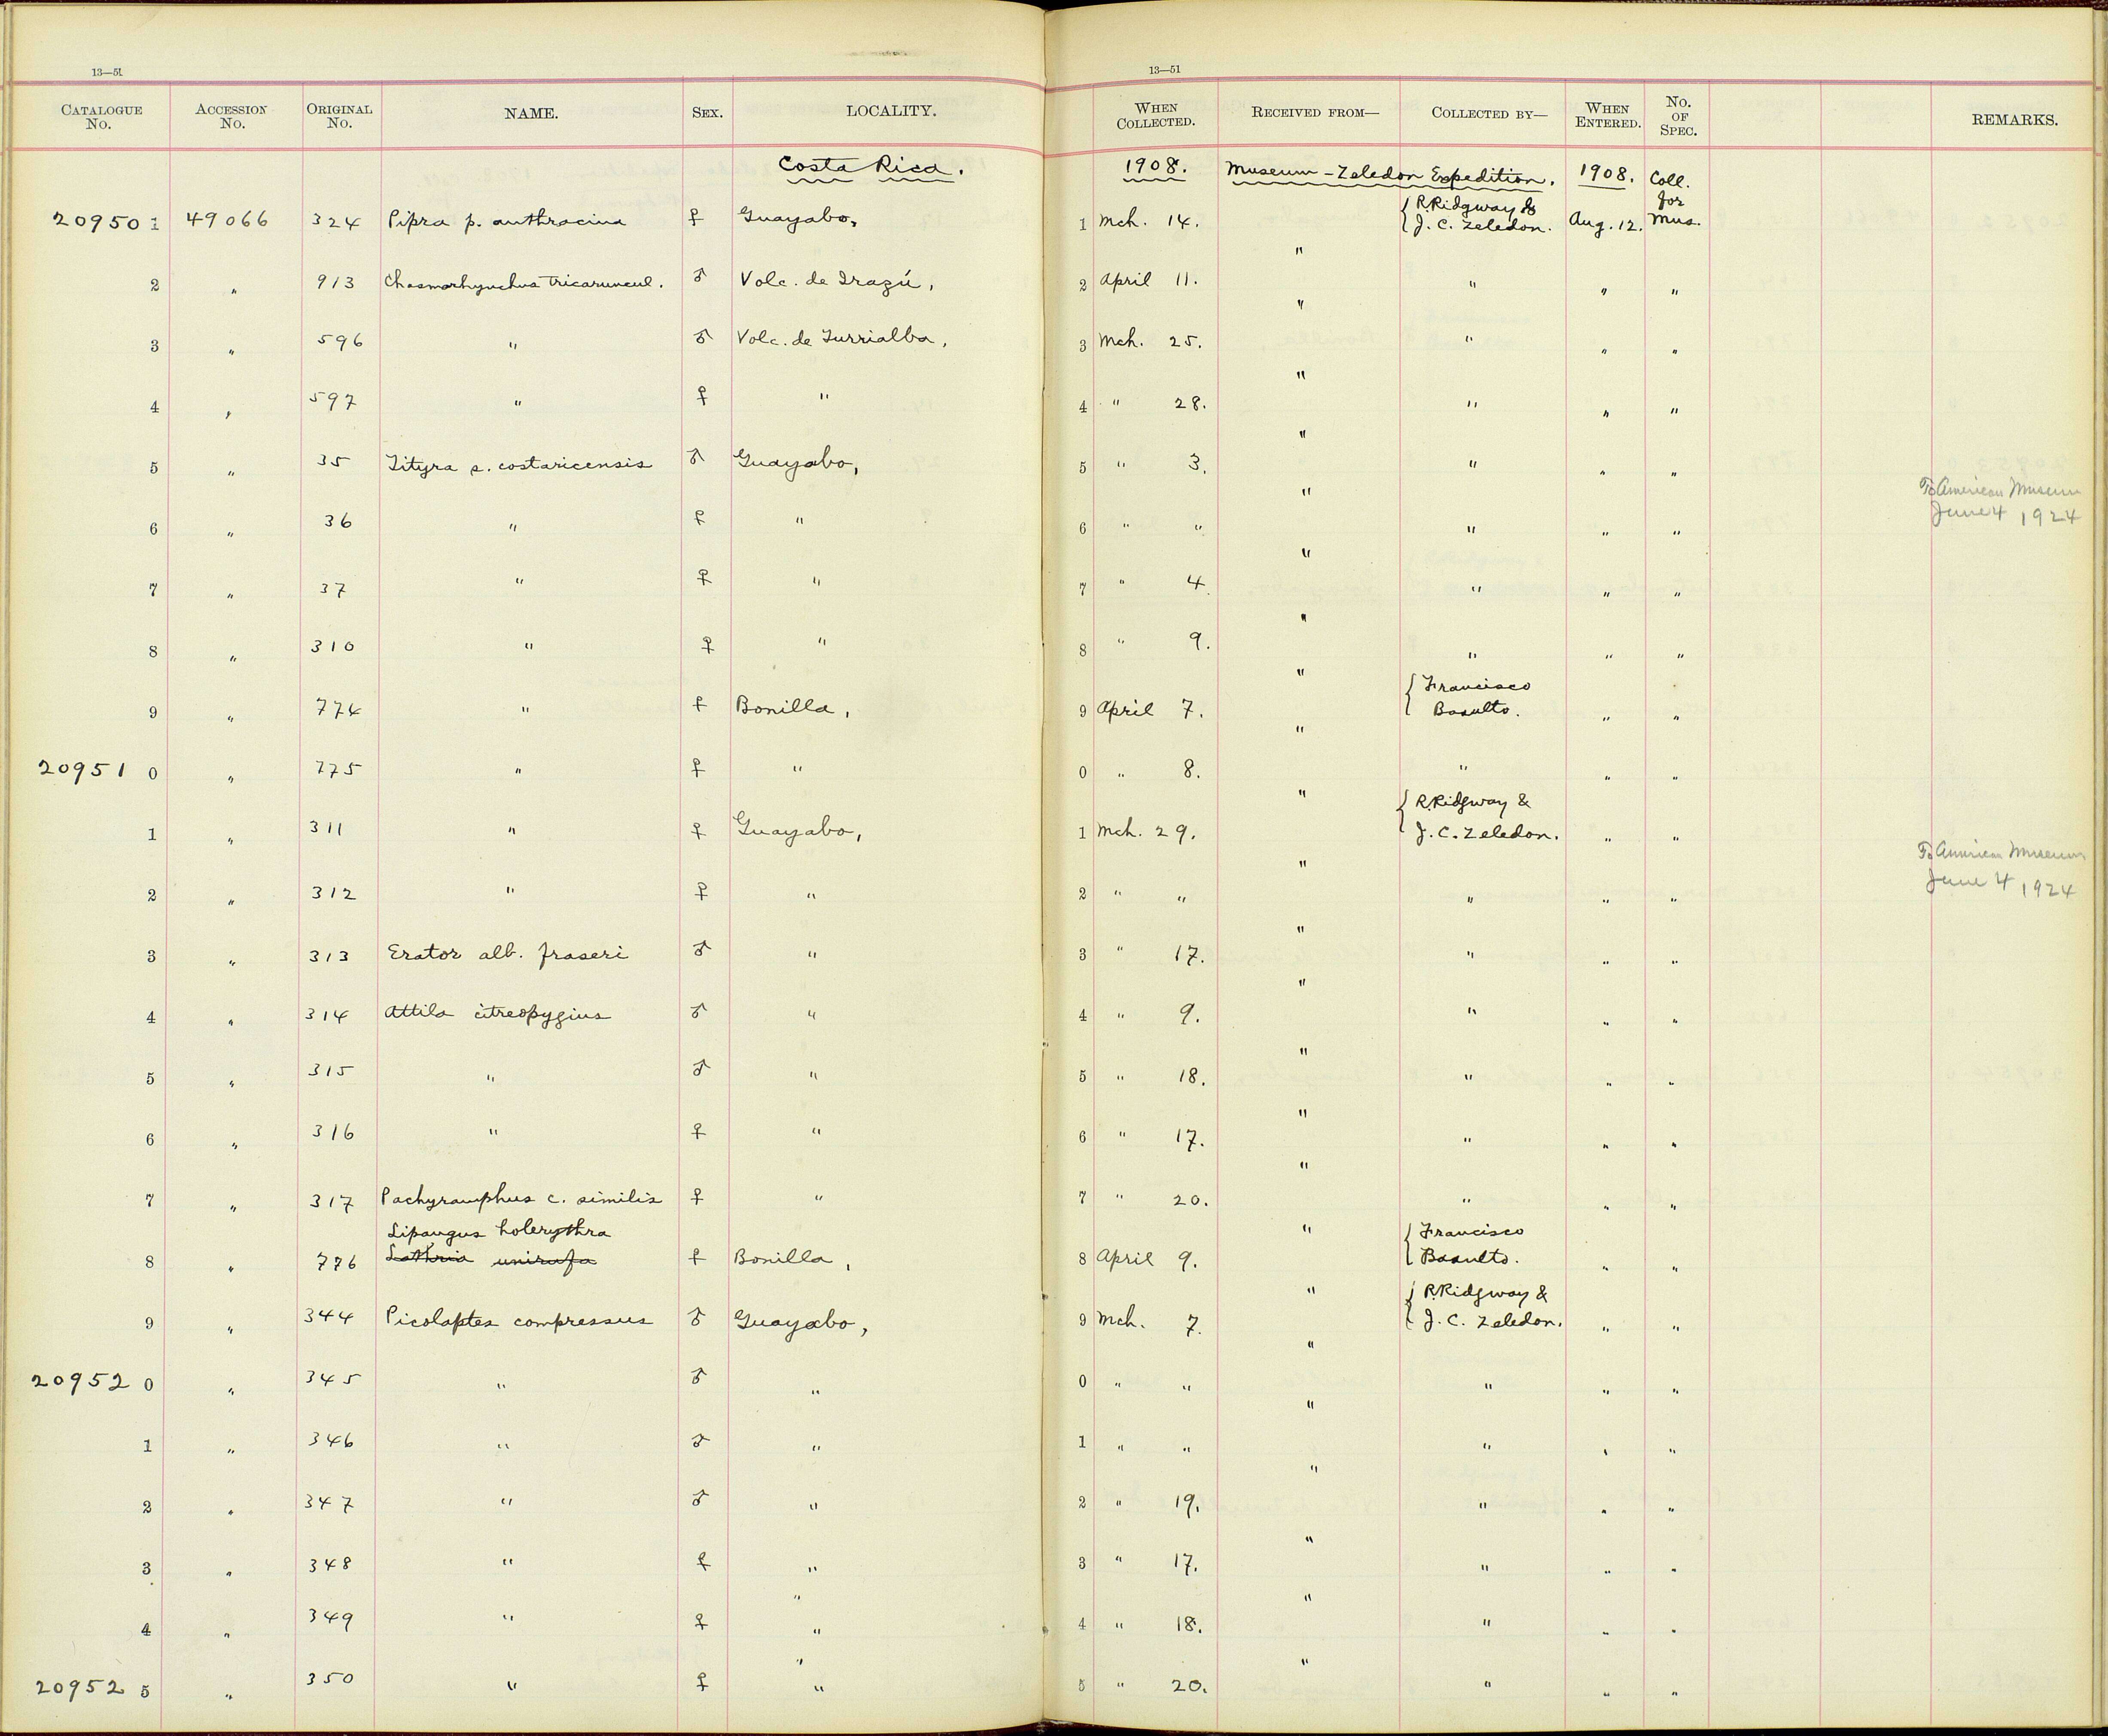 13—51 13—51
CATALOGUE No. ACCESSION No. ORIGINAL No. NAME. SEX. LOCALITY. WHEN COLLECTED. RECEIVED FROM— COLLECTED BY— WHEN ENTERED. No. OF SPEC. REMARKS.
Costa Rica. 1908. Museum-Zeledon Expedition. 1908. Coll. for Mus.
20950 1 49066 324 Pipra p. anthracina ♀ Guayabo, 1 Mch. 14. { R. Ridgway & J. C. Zeledon. Aug. 12.
2 " 913 Chasmorhynchus tricaruncul. ♂ Volc. de Irazú, 2 April 11. " " " "
3 " 596 " ♂ Volc. de Turrialba, 3 Mch. 25. " " " "
4 " 597 " ♀ " 4 " 28. " " " "
5 " 35 Tityra s. costaricensis ♂ Guayabo, 5 " 3. " " " "
6 " 36 " ♀ " 6 " " " " " " To American Museum June 4 1924
7 " 37 " ♀ " 7 " 4. " " " "
8 " 310 " ♀ " 8 " 9. " " " "
9 " 774 " ♀ Bonilla, 9 April 7. " { Francisco Basulto. " "
20951 0 " 775 " ♀ " 0 " 8. " " " "
1 " 311 " ♀ Guayabo, 1 Mch. 29. " { R. Ridgway & J. C. Zeledon. " "
2 " 312 " ♀ " 2 " " " " " " To American Museum June 4 1924
3 " 313 Erator alb. fraseri ♂ " 3 " 17. " " " "
4 " 314 Attila citreopygius ♂ " 4 " 9. " " " "
5 " 315 " ♂ " 5 " 18. " " " "
6 " 316 " ♀ " 6 " 17. " " " "
7 " 317 Pachyramphus c. similis ♀ " 7 " 20. " " " "
Lipaugus holerythra
8 " 776 Lathria unirufa ♀ Bonilla, 8 April 9. " { Francisco Basulto. " "
9 " 344 Picolaptes compressus ♂ Guayabo, 9 Mch. 7. " { R. Ridgway & J. C. Zeledon. " "
20952 0 " 345 " ♂ " 0 " " " " " "
1 " 346 " ♂ " 1 " " " " " "
2 " 347 " ♂ " 2 " 19. " " " "
3 " 348 " ♀ " 3 " 17. " " " "
4 " 349 " ♀ " 4 " 18. " " " "
20952 5 " 350 " ♀ " 5 " 20. " " " "